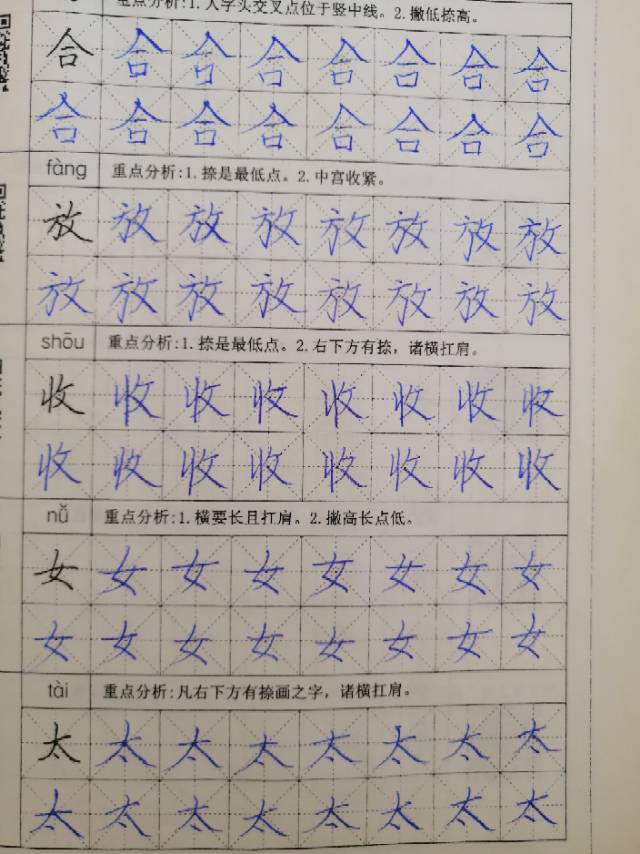 重点分析:1.人字头交叉点位于竖中线。2.撇低捺高。
合 合 合 合 合 合 合 合
合 合 合 合 合 合 合 合
fàng 重点分析:1.捺是最低点。2.中宫收紧。
放 放 放 放 放 放 放 放
放 放 放 放 放 放 放 放
shōu 重点分析:1.捺是最低点。2.右下方有捺，诸横扛肩。
收 收 收 收 收 收 收 收
收 收 收 收 收 收 收 收
nǚ 重点分析:1.横要长且扛肩。2.撇高长点低。
女 女 女 女 女 女 女 女
女 女 女 女 女 女 女 女
tài 重点分析:凡右下方有捺画之字，诸横扛肩。
太 太 太 太 太 太 太 太
太 太 太 太 太 太 太 太